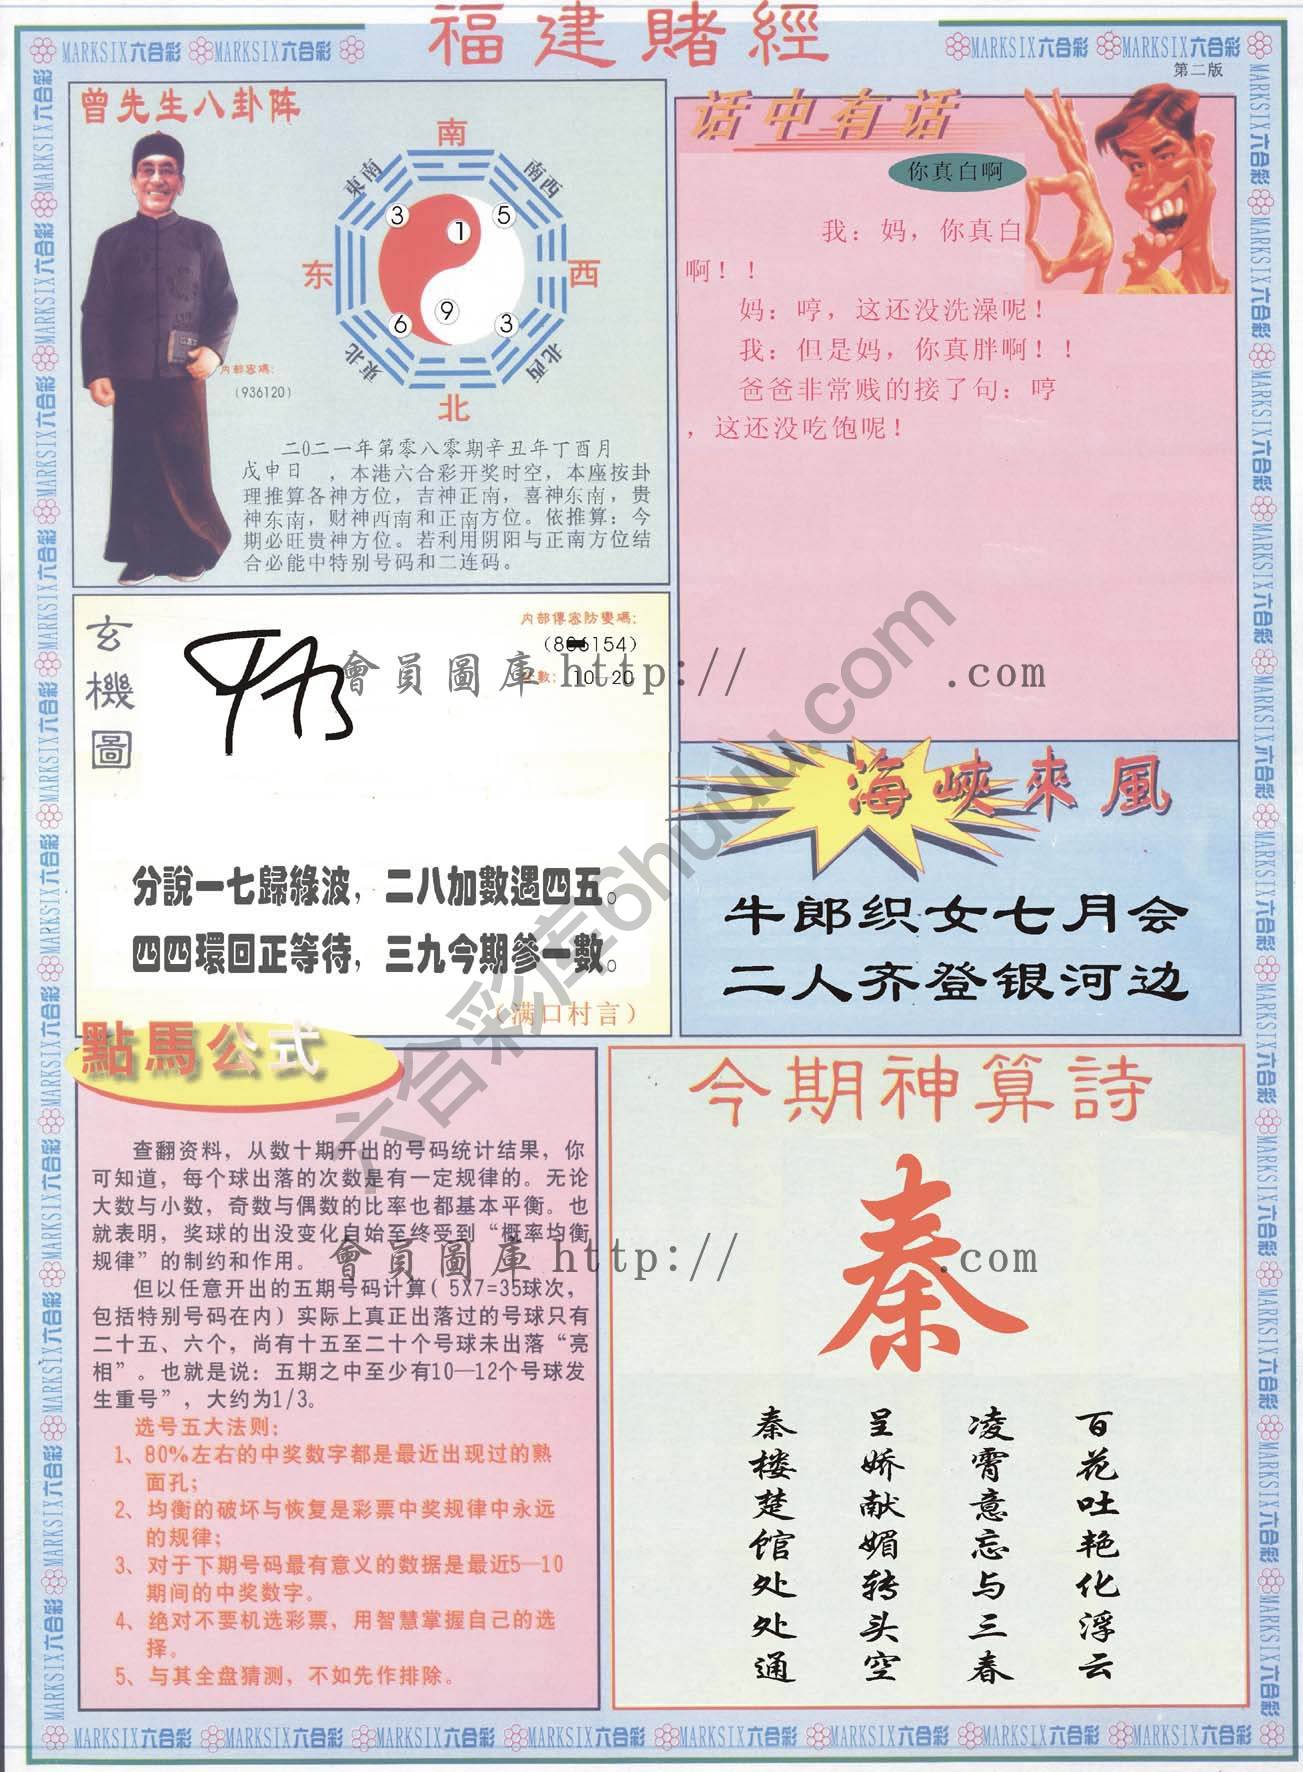 福建賭經
MARKSIX六合彩 MARKSIX六合彩
MARKSIX六合彩 MARKSIX六合彩
第二版
曾先生八卦阵
南
東南
南西
3
5
1
东
西
9
6
3
東北
北西
北
内部密碼：
（936120）
二0二一年第零八零期辛丑年丁酉月
戊申日　，本港六合彩开奖时空，本座按卦
理推算各神方位，吉神正南，喜神东南，贵
神东南，财神西南和正南方位。依推算：今
期必旺贵神方位。若利用阴阳与正南方位结
合必能中特别号码和二连码。
话中有话
你真白啊
我：妈，你真白
啊！！
妈：哼，这还没洗澡呢！
我：但是妈，你真胖啊！！
爸爸非常贱的接了句：哼
，这还没吃饱呢！
玄機圖
内部傳密防變碼：
數：10—20
分說一七歸綠波，二八加數遇四五。
四四環回正等待，三九今期參一數。
（满口村言）
海峽來風
牛郎织女七月会
二人齐登银河边
點馬公式
查翻资料，从数十期开出的号码统计结果，你
可知道，每个球出落的次数是有一定规律的。无论
大数与小数，奇数与偶数的比率也都基本平衡。也
就表明，奖球的出没变化自始至终受到“概率均衡
规律”的制约和作用。
但以任意开出的五期号码计算（5X7=35球次，
包括特别号码在内）实际上真正出落过的号球只有
二十五、六个，尚有十五至二十个号球未出落“亮
相”。也就是说：五期之中至少有10—12个号球发
生重号”，大约为1/3。
选号五大法则：
1、80%左右的中奖数字都是最近出现过的熟
面孔；
2、均衡的破坏与恢复是彩票中奖规律中永远
的规律；
3、对于下期号码最有意义的数据是最近5—10
期间的中奖数字。
4、绝对不要机选彩票，用智慧掌握自己的选
择。
5、与其全盘猜测，不如先作排除。
今期神算詩
秦
百花吐艳化浮云
凌霄意忘与三春
呈娇献媚转头空
秦楼楚馆处处通
會員圖庫 http:// .com
會員圖庫 http:// .com
六合彩库6huuu.com